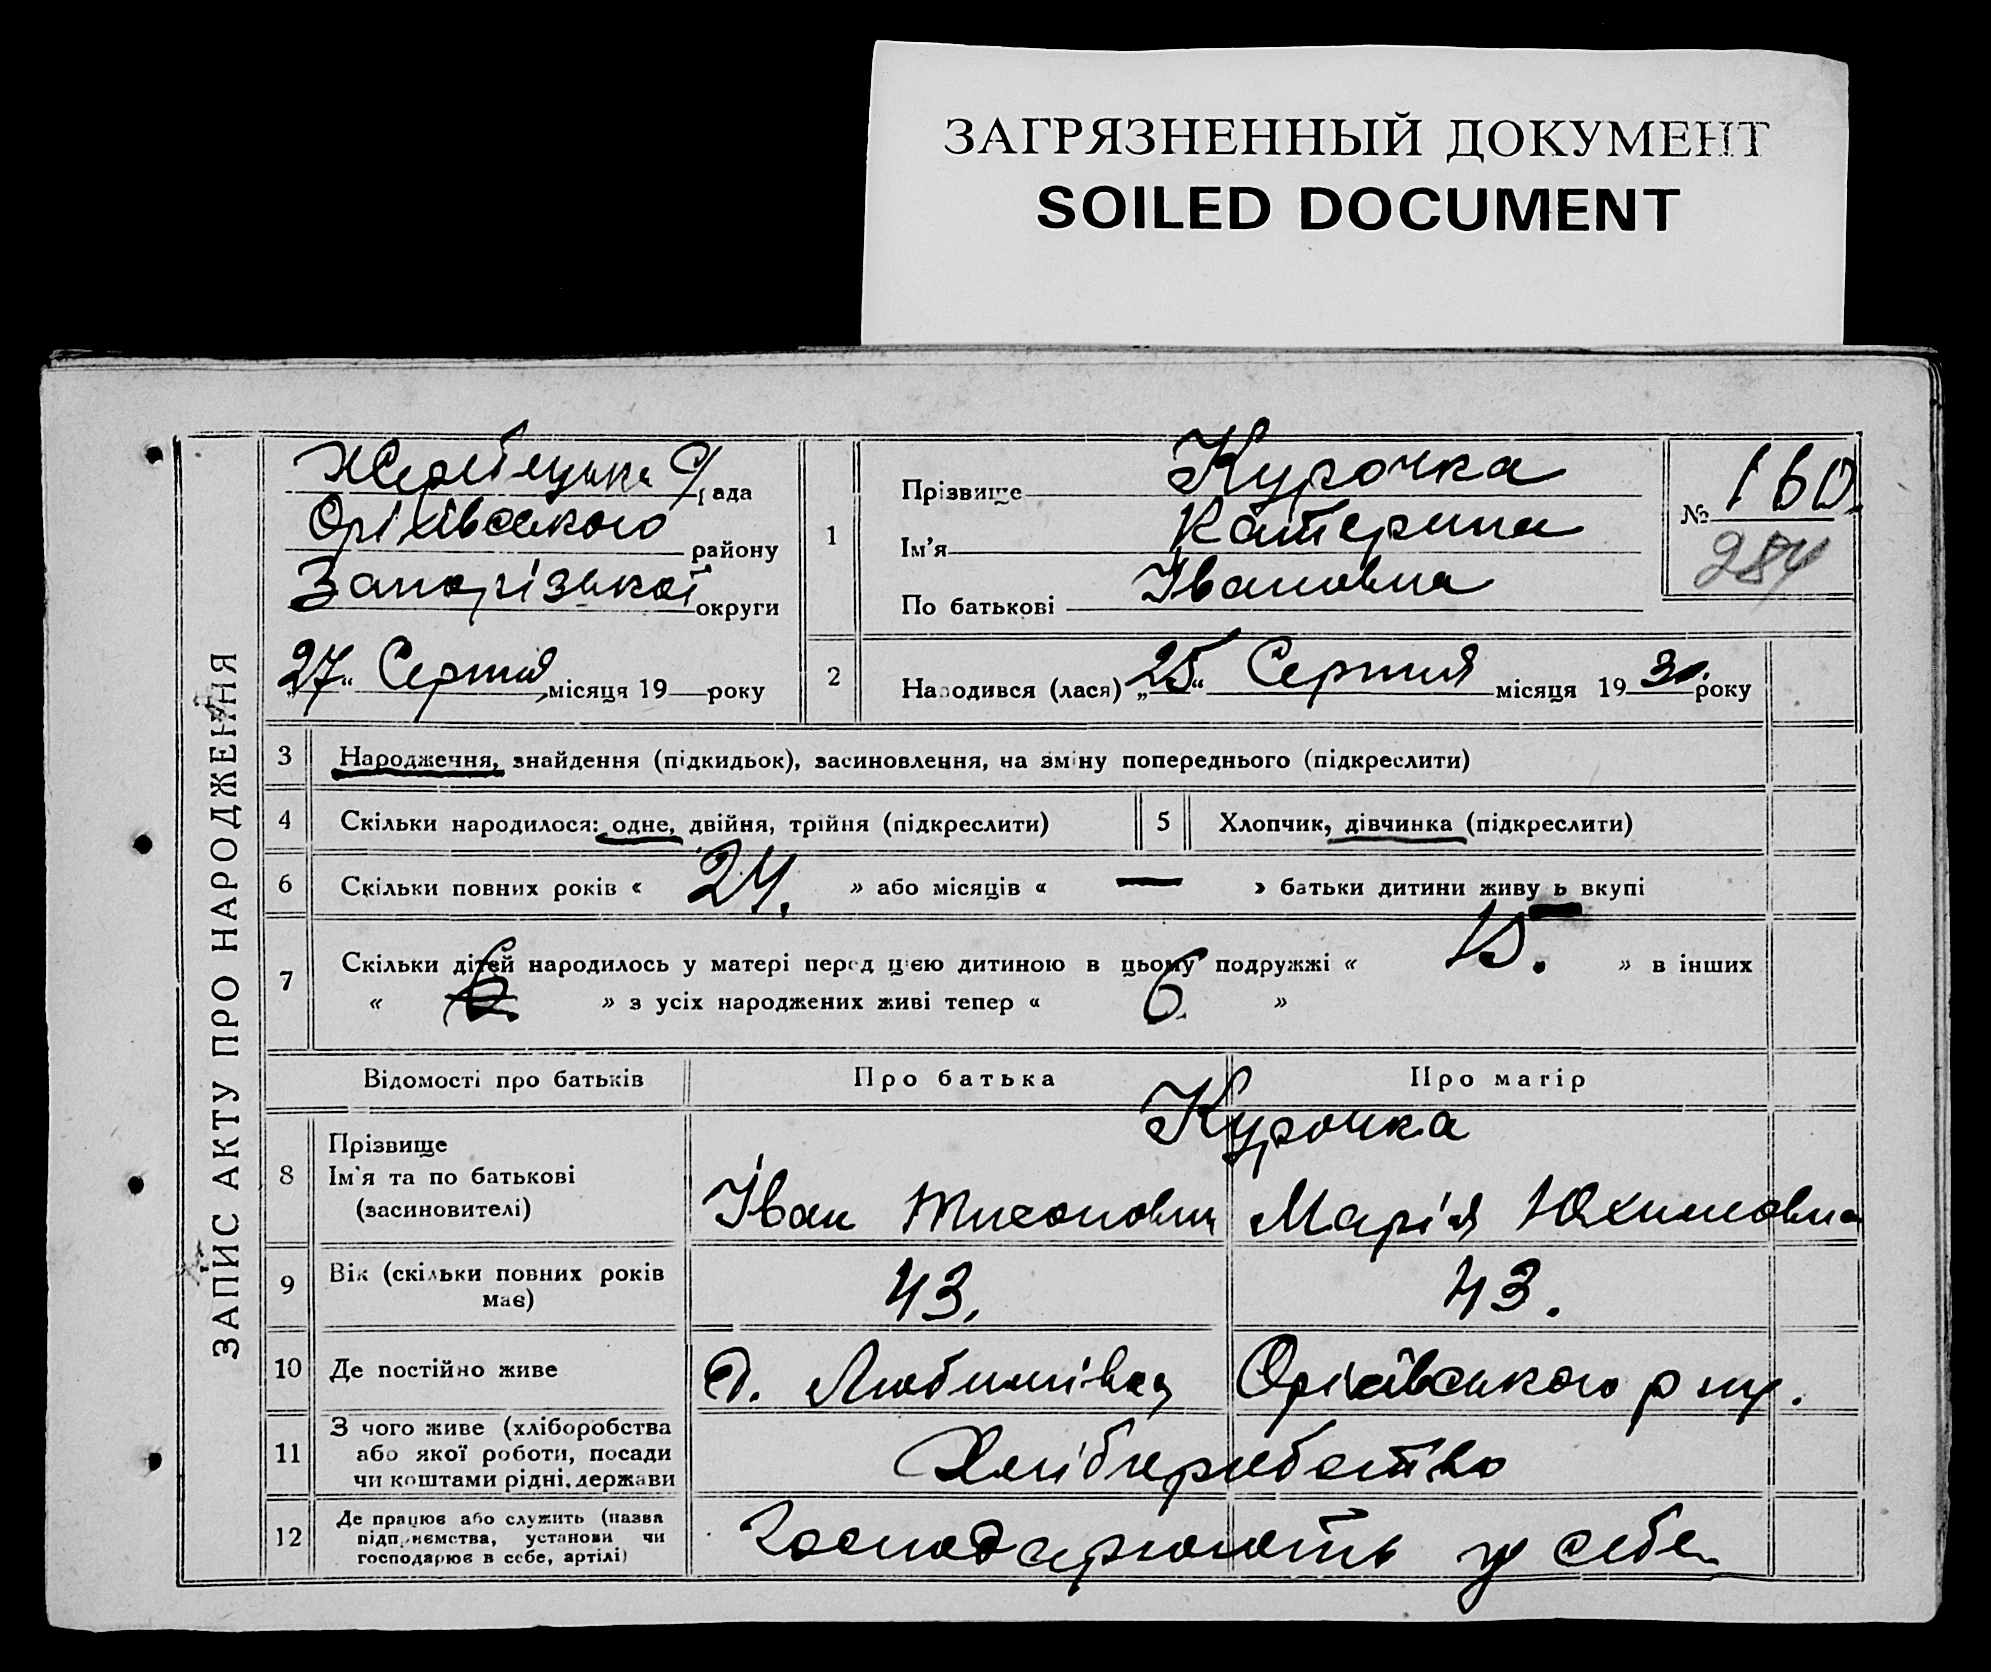 ЗАГРЯЗНЕННЫЙ ДОКУМЕНТ
SOILED DOCUMENT
ЗАПИС АКТУ ПРО НАРОДЖЕННЯ
Жеребецька С/рада
Оріхівського району
Запорізької округи
„27“ Серпня місяця 19 року
1
Прізвище Курочка
Ім'я Катерина
По батькові Івановна
№ 160.
284
2
Народився (лася) „25“ Серпня місяця 1930. року
3 Народження, знайдення (підкидьок), засиновлення, на зміну попереднього (підкреслити)
4 Скільки народилося: одне, двійня, трійня (підкреслити)
5 Хлопчик, дівчинка (підкреслити)
6 Скільки повних років « 24. » або місяців « — » батьки дитини живу ь вкупі
7 Скільки дітей народилось у матері перед цією дитиною в цьому подружжі « 10. » в інших
« » з усіх народжених живі тепер « 6. »
Відомості про батьків Про батька Про матір
Курочка
8 Прізвище
Ім'я та по батькові
(засиновителі)
Іван Тихонович Марія Юхимовна
9 Вік (скільки повних років
має)
43. 43.
10 Де постійно живе д. Любимівка Оріхівського р ну.
11 З чого живе (хліборобства
або якої роботи, посади
чи коштами рідні, держави
Хліборобство
12 Де працює або служить (назва
підприємства, установи чи
господарює в себе, артілі)
Господарюють у себе